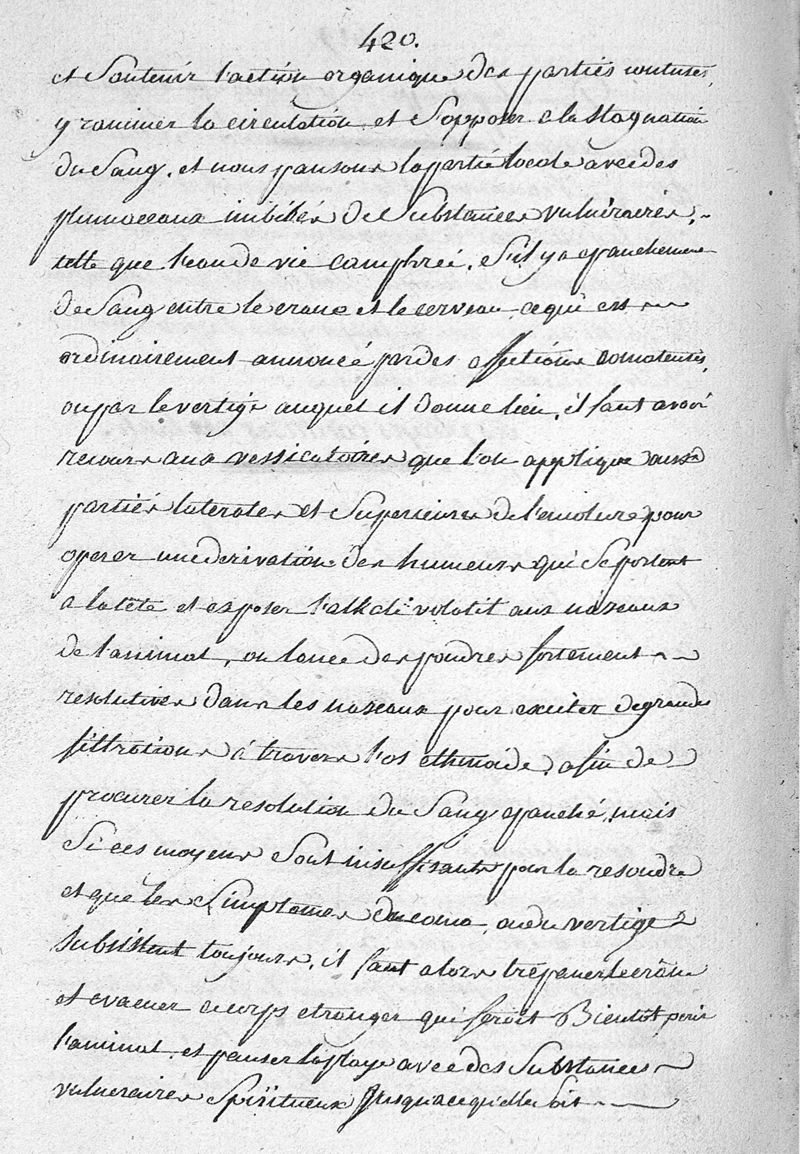 420.
et Soutenir l'action organique des parties contuses,
y ranimer la circulation, et S'opposer a la Stagnation
du Sang, et nous pansons la partie locale avec des
plumaceaux imbibés de Substances vulnéraires,
telle que l'eau de vie camphrée, S'il y a epanchement
de Sang entre le crane et le cerveau ce qui est
ordinairement annoncé par des affections comateuses,
ou par le vertige auquel il donne lieu, il faut avoir
recours aux vessicatoires que l'on applique aux
parties laterales et Superieures de l'encolure pour
operer une derivation des humeurs qui Se portent
a la tête et exposer l'alkali volatil aux nazeaux
de l'animal, ou lancé des poudres fortement
resolutives dans les nazeaux pour exciter de grandes
filtrations à travers l'os ethmoide, afin de
procurer la resolution du Sang epanché, mais
Si ces moyens Sont insuffisants pour la resoudre
et que les Simptomes du coma, ou du vertige
Subsistent toujours, il faut alors trépaner le crâne
et evacuer ce corps etranger qui feroit Bientôt perir
l'animal, et panser la playe avec des Substances
vulneraires Spiritueux Jusqu'a ce qu'elle Soit